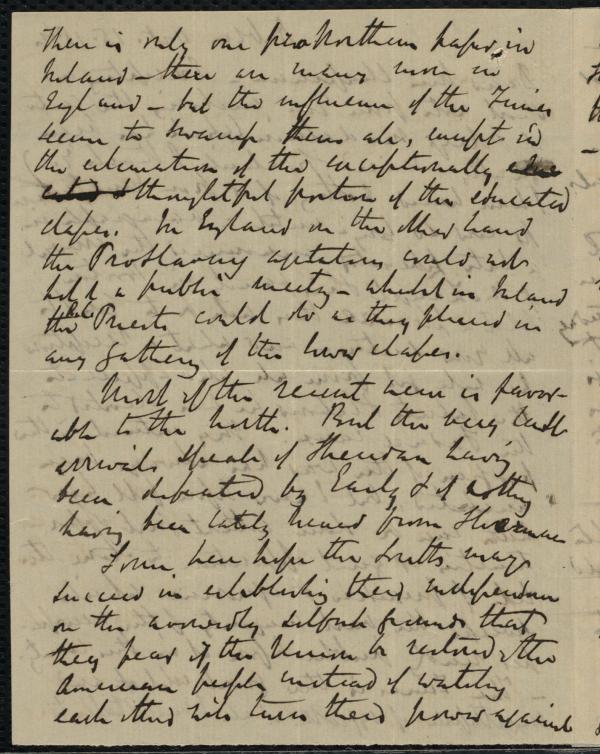 There is only one pro Northern paper in
Ireland – there are many more in
England – but the influence of the Times
seems to swamp them all, except in
the estimation of the exceptionally
thoughtful portion of the educated
classes. In England on the other hand
the Proslavery agitators could not
hold a public meeting – whilst in Ireland
the Priests could do as they pleased in
any gathering of the lower classes.
Most of the recent news is favor-
able to the north. But the very last
arrivals speak of Sheridan having
been defeated by Early & of nothing
having been lately heard from Sherman
Some here hope the South may
succeed in establishing their independence
on the avowedly selfish grounds that
they fear if the Union be restored, the
American people instead of watching
each other will turn their power against